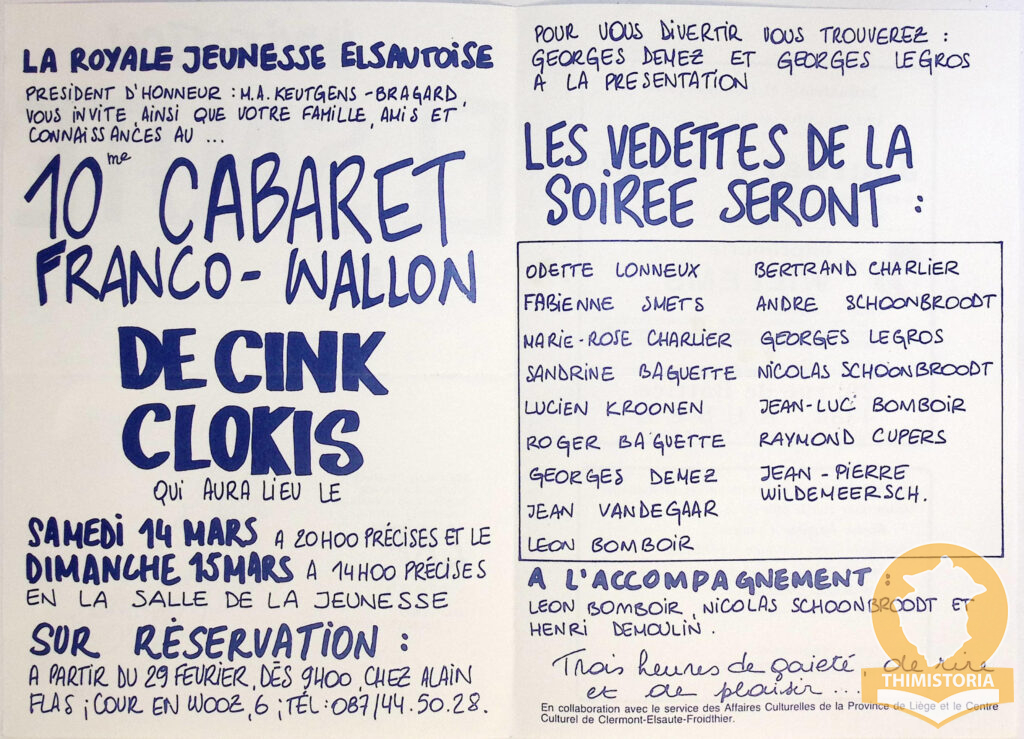 LA ROYALE JEUNESSE ELSAUTOISE
PRESIDENT D'HONNEUR : M.A. KEUTGENS - BRAGARD,
VOUS INVITE, AINSI QUE VOTRE FAMILLE, AMIS ET
CONNAISSANCES AU ...
10me CABARET
FRANCO - WALLON
DE CINK
CLOKIS
QUI AURA LIEU LE
SAMEDI 14 MARS A 20H00 PRÉCISES ET LE
DIMANCHE 15 MARS A 14H00 PRÉCISES
EN LA SALLE DE LA JEUNESSE
SUR RÉSERVATION :
A PARTIR DU 29 FEVRIER, DÈS 9H00, CHEZ ALAIN
FLAS ; COUR EN WOOZ, 6 ; TÉL : 087/44.50.28.
POUR VOUS DIVERTIR VOUS TROUVEREZ :
GEORGES DEMEZ ET GEORGES LEGROS
A LA PRESENTATION
LES VEDETTES DE LA
SOIREE SERONT :
ODETTE LONNEUX
FABIENNE SMETS
MARIE-ROSE CHARLIER
SANDRINE BAGUETTE
LUCIEN KROONEN
ROGER BAGUETTE
GEORGES DEMEZ
JEAN VANDEGAAR
LEON BOMBOIR
BERTRAND CHARLIER
ANDRE SCHOONBROODT
GEORGES LEGROS
NICOLAS SCHOONBROODT
JEAN-LUC BOMBOIR
RAYMOND CUPERS
JEAN - PIERRE
WILDEMEERSCH.
A L'ACCOMPAGNEMENT :
LEON BOMBOIR, NICOLAS SCHOONBROODT ET
HENRI DEMOULIN.
Trois heures de gaieté, de rire
et de plaisir ...
En collaboration avec le service des Affaires Culturelles de la Province de Liège et le Centre
Culturel de Clermont-Elsaute-Froidthier.
THIMISTORIA